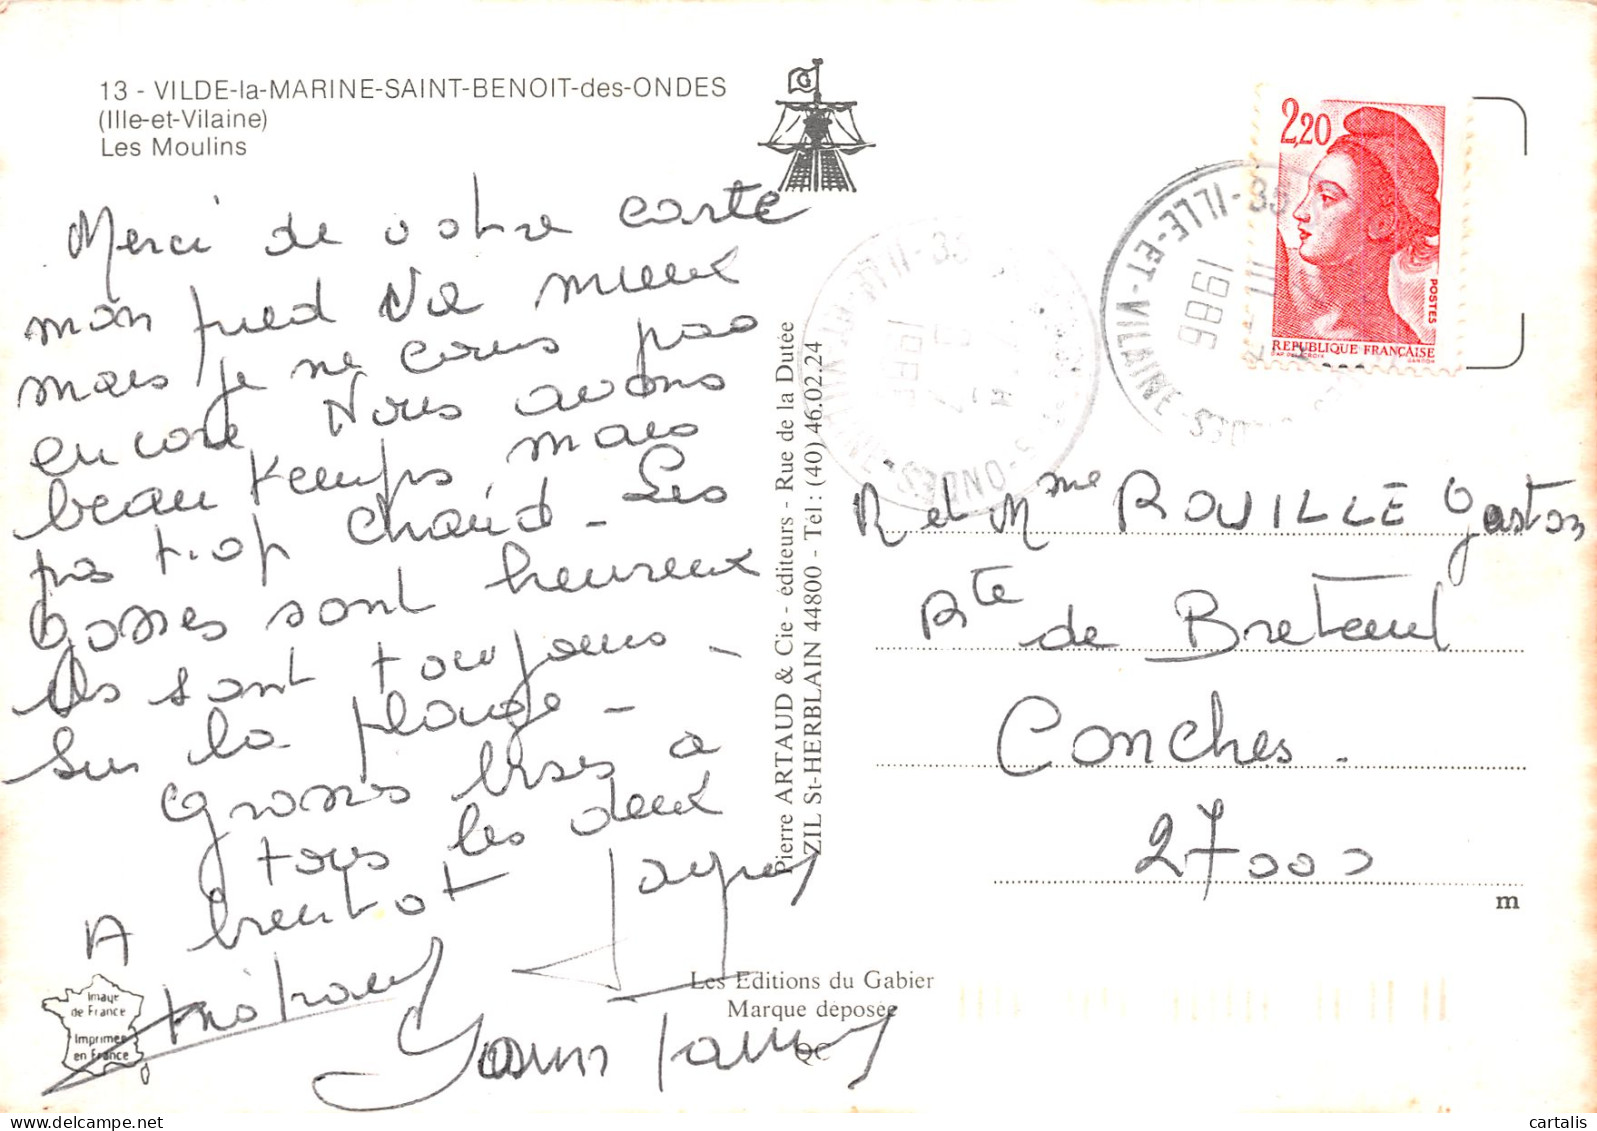 13 - VILDE-la-MARINE-SAINT-BENOIT-des-ONDES
(Ille-et-Vilaine)
Les Moulins
Merci de votre carte
mon pied va mieux
mais je ne cours pas
encore Nous avons
beau temps mais
pas trop chaud - Les
Gosses sont heureux
ils sont toujours -
sur la plage -
Grosses bises a
tous les deux
A bientot
Image
de France
Imprimée
en France
Yann
Pierre ARTAUD & Cie - éditeurs - Rue de la Dutée
ZIL St-HERBLAIN 44800 - Tél : (40) 46.02.24
Les Editions du Gabier
Marque déposée
QC
G
ONDES-S
ILLE-ET-VILAINE
35
1986
2,20
POSTES
REPUBLIQUE FRANÇAISE
R et Mme ROUILLE Gaston
Rte de Breteuil
Conches.
27000
m
cartalis